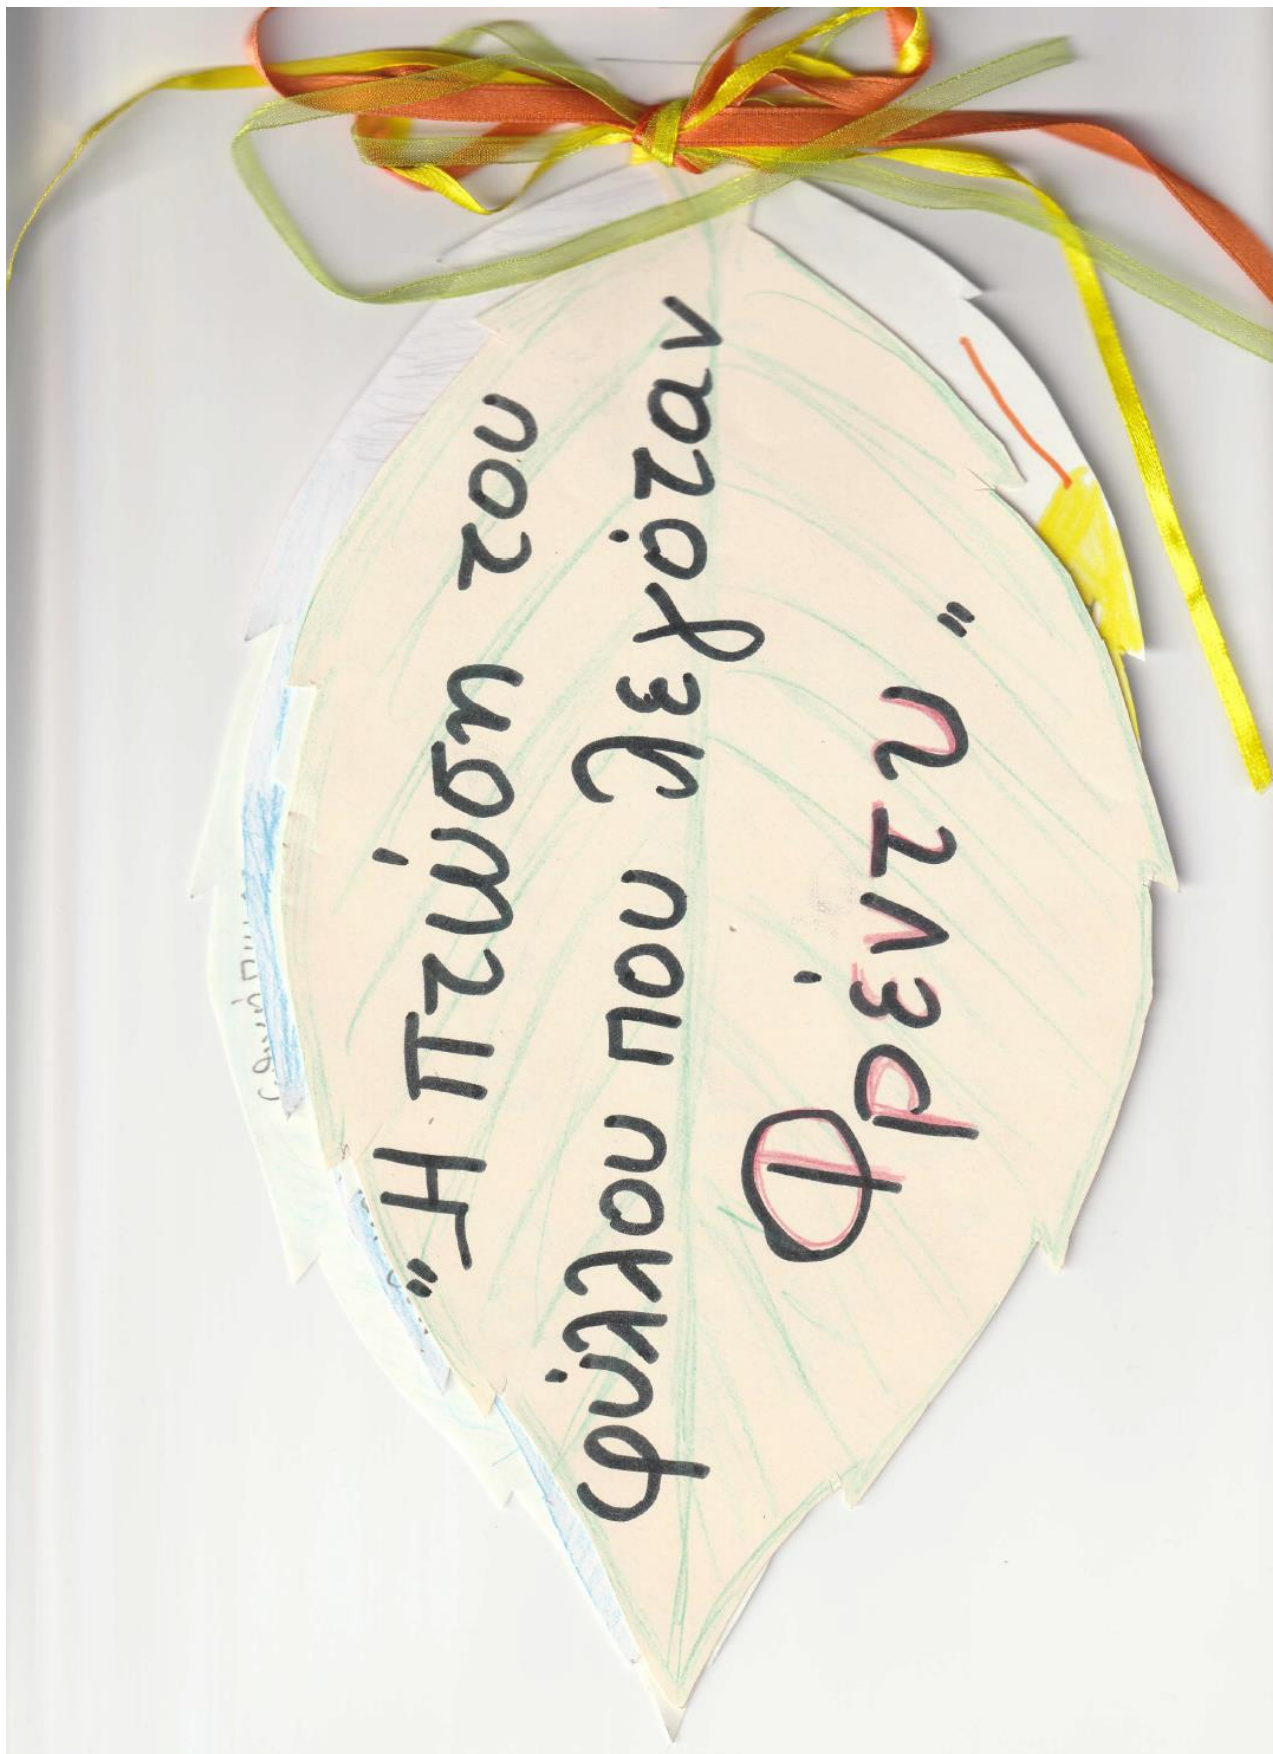 "Η πτώση του
φύλλου που λεγόταν
Φρέντυ"